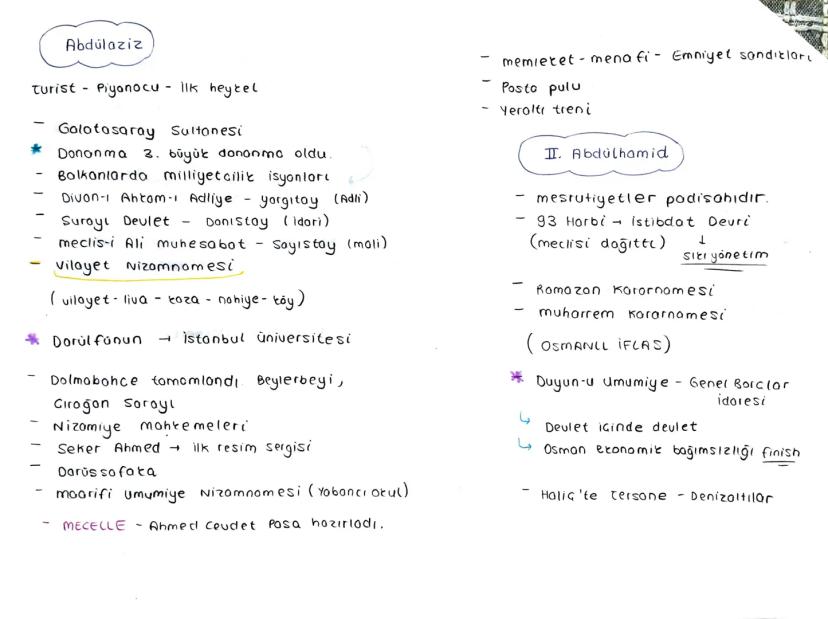 Abdülaziz
Turist - Piyanocu - İlk heykel
- Galatasaray Sultanesi
* Donanma 3. büyük donanma oldu.
- Balkanlarda milliyetcilik isyanları
- Divan-ı Ahkam-ı Adliye - yargıtay (Adli)
- Surayı Devlet - Danıstay (idari)
- meclis-i Ali muhesabat - Sayıstay (mali)
- Vilayet Nizamnamesi
(vilayet - liva - kaza - nahiye - köy)
* Darülfünun → istanbul üniversitesi
- Dolmabahce tamamlandı Beylerbeyi,
Cırağan Sarayı
- Nizamiye Mahkemeleri
- Seker Ahmed → ilk resim sergisi
- Darüssafaka
- maarifi umumiye Nizamnamesi (Yabancı okul)
- MECELLE - Ahmed Cevdet Pasa hazırladı.
- memleket - menafi - Emniyet sandıkları
- Posta pulu
- Yeraltı treni
II. Abdülhamid
- mesrutiyetler padisahıdır.
- 93 Harbi → istibdat Devri
(meclisi dağıttı) ↓ sıkı yönetim
- Ramazan kararnamesi
- muharrem kararnamesi
(OSMANLI İFLAS)
* Duyun-u umumiye - Genel Borclar
idaresi
↳ Devlet icinde devlet
↳ Osman ekonomik bağımsızlığı finish
- Halic'te tersane - Denizaltılar